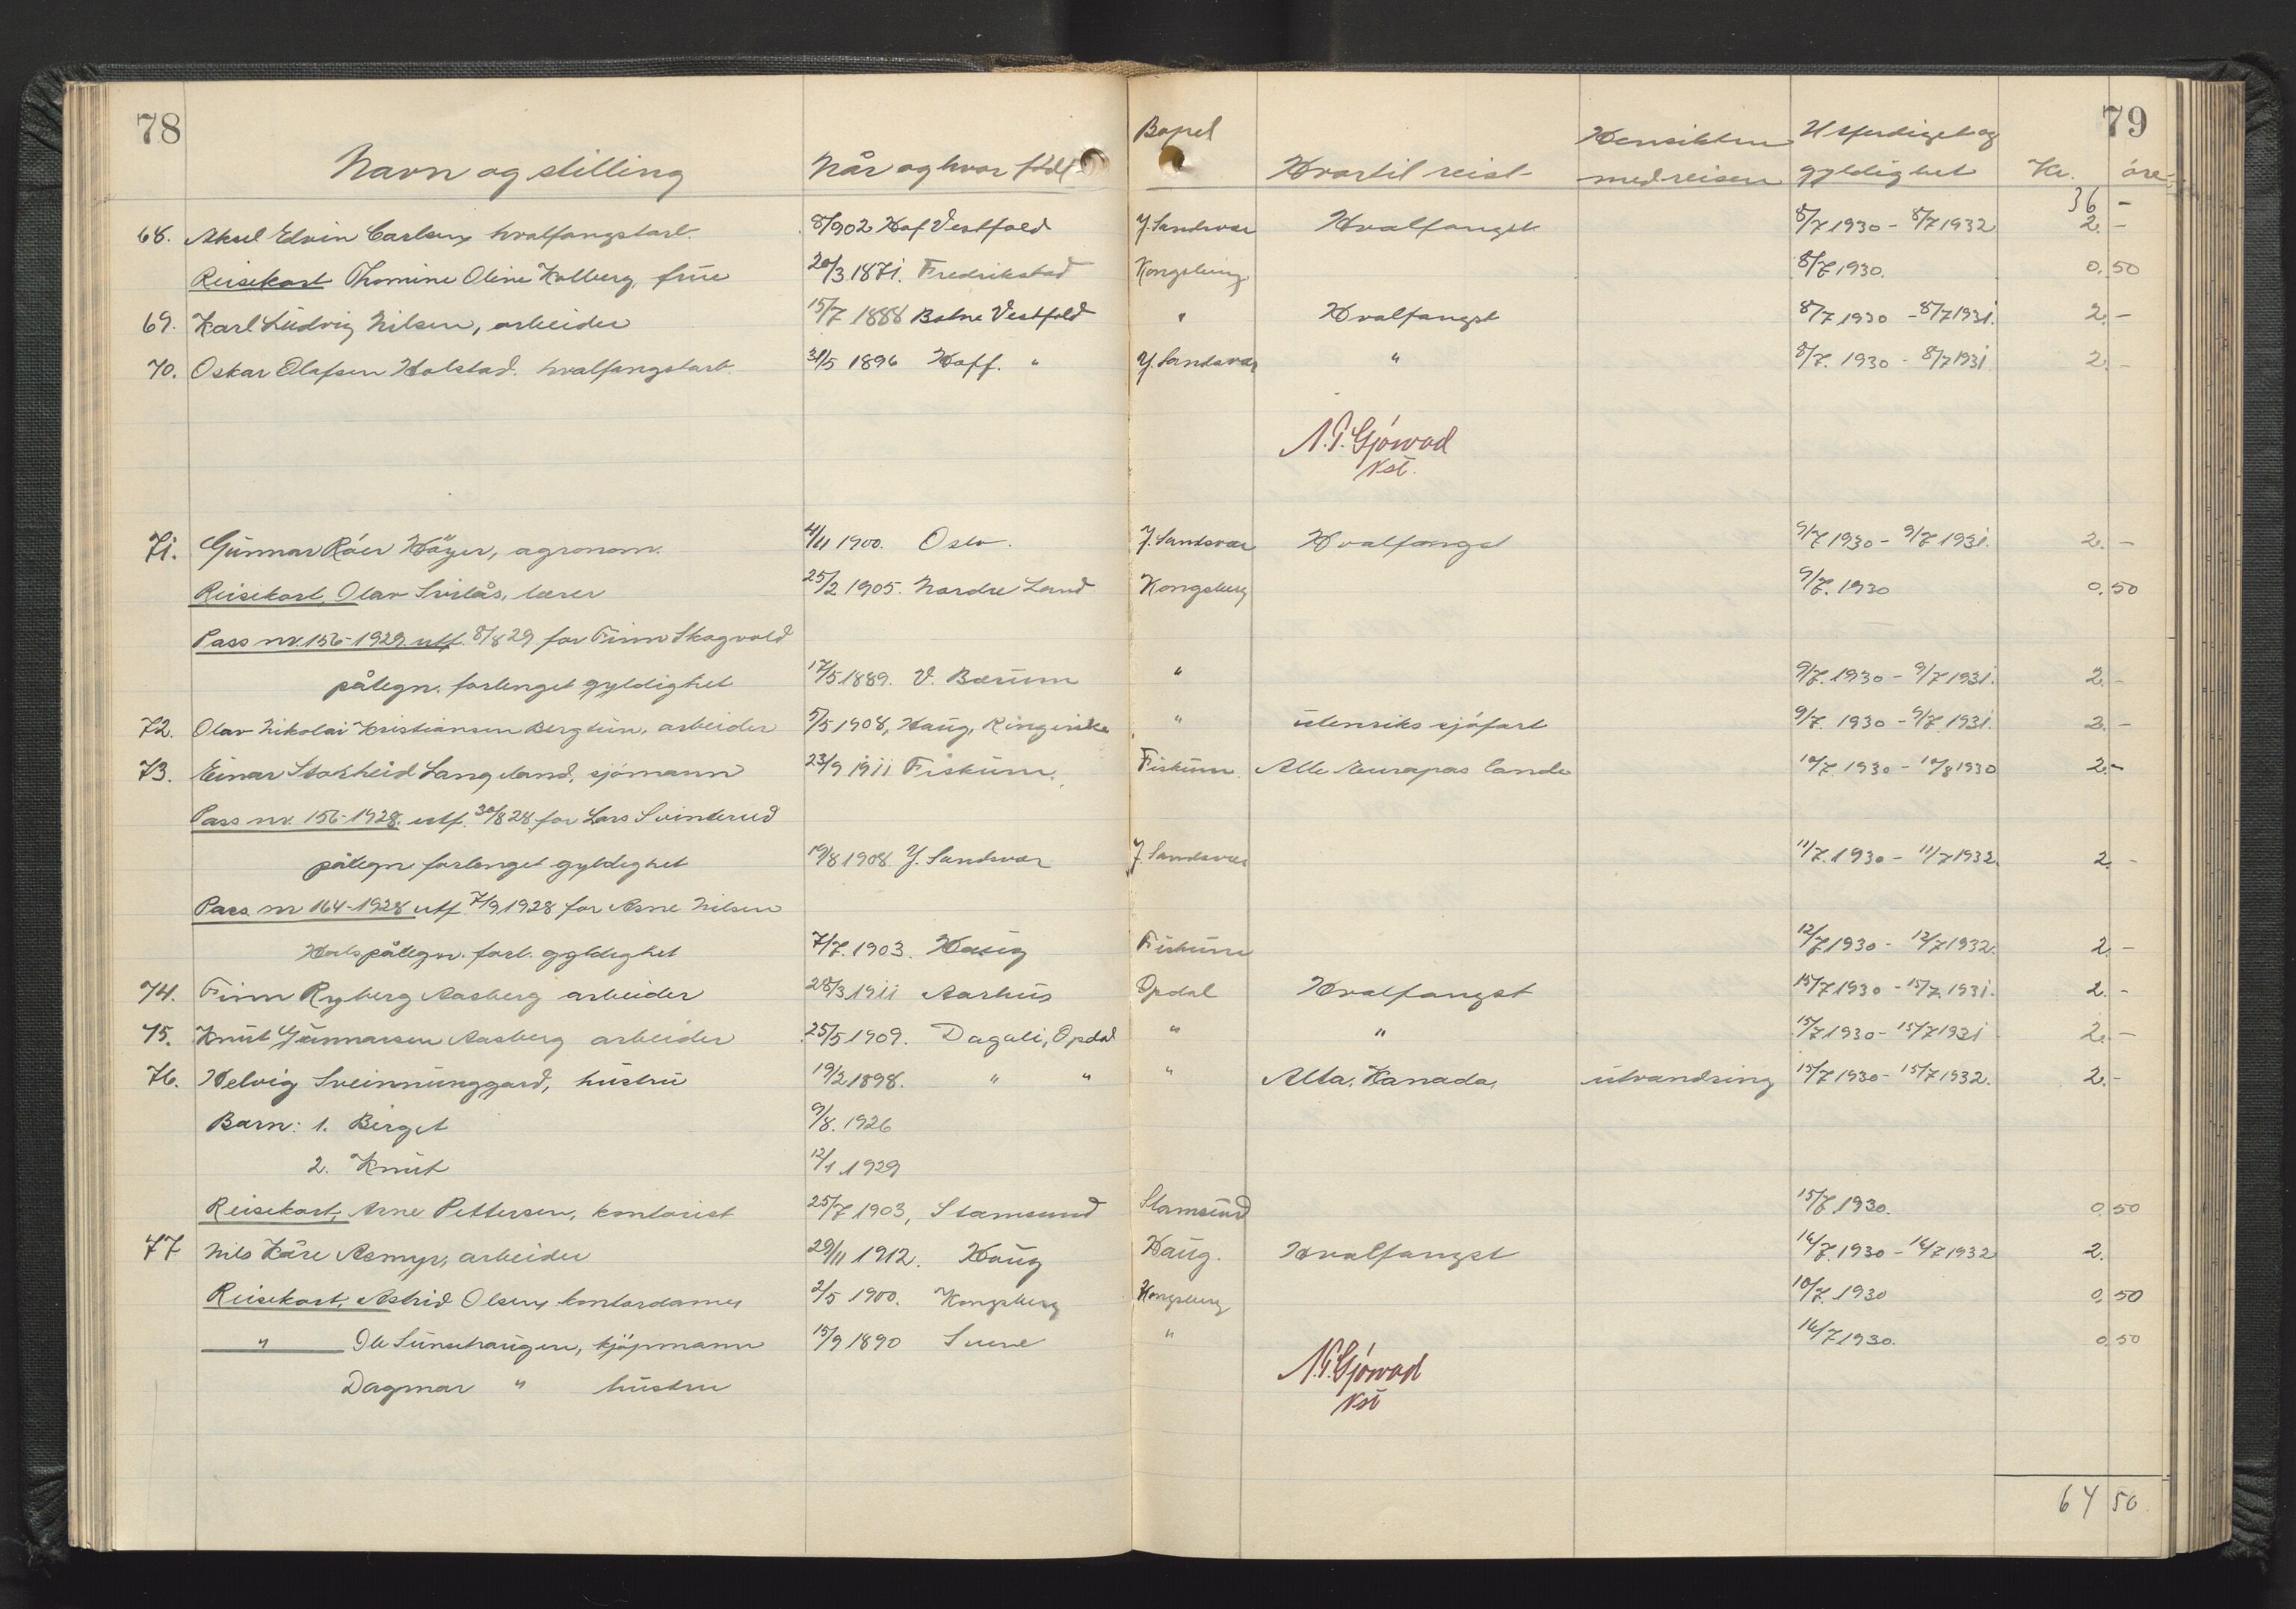 78
79
Navn og stilling Når og hvor födt Bopel Hvortil reist Hensikten med reisen Utferdiget og gyldighet Kr. øre
36 -
68. Aksel Edvin Carlsen hvalfangstarb. 8/902 Hof Vestfold Y. Sandsvær Hvalfangst 8/7 1930 - 8/7 1932 2. -
Reisekort Thomine Oline Holberg, frue 20/3 1871. Fredrikstad Kongsberg 8/7 1930. 0.50
69. Karl Ludvig Nilsen, arbeider 15/7 1888 Botne Vestfold " Hvalfangst 8/7 1930 - 8/7 1931. 2. -
70. Oskar Olafsen Holstad. hvalfangstarb. 31/5 1896 Hoff. " Y. Sandsvær " 8/7. 1930 - 8/7 1931 2. -
N.P. Gjøwad
Kst.
71. Gunnar Róer Höyer, agronom. 4/11 1900. Oslo. Y. Sandsvær Hvalfangst 9/7 1930 - 9/7 1931. 2. -
Reisekort, Olav Svilås, lærer 25/2 1905. Nordre Land Kongsberg 9/7. 1930 0.50
Pass nr. 156-1929 utf. 8/8 29 for Finn Skogvold
påtegn. forlenget gyldighet 17/5 1889. V. Bærum " 9/7. 1930 - 9/7 1931. 2. -
72. Olav Nikolai Kristiansen Bergtun, arbeider 5/5 1908, Haug, Ringerike " utenriks sjöfart 9/7. 1930 - 9/7. 1931. 2. -
73. Einar Stokheid Langeland, sjömann 23/9 1911 Fiskum. Fiskum. Alle Europas lande 10/7. 1930 - 10/8 1930 2. -
Pass nr. 156-1928. utf. 30/8 28 for Lars Svinterud
påtegn forlenget gyldighet 19/8 1908 Y. Sandsvær Y. Sandsvær 11/7. 1930 - 11/7 1932. 2. -
Pass nr 164-1928 utf. 7/9 1928 for Arne Nilsen
Hals påtegn. forl. gyldighet 7/7. 1903. Haug Fiskum 12/7 1930 - 12/7 1932. 2 -
74. Finn Ryberg Aasberg arbeider 28/3 1911 Aarhus Opdal Hvalfangst 15/7 1930 - 15/7. 1931. 2. -
75. Knut Gunnarsen Aasberg arbeider 25/5 1909. Dagali, Opdal " " 15/7 1930 - 15/7 1931 2. -
76. Helvig Sveinnunggard, hustru 19/2 1898. " " " Alta, Kanada, utvandring 15/7 1930 - 15/7 1932. 2. -
Barn: 1. Birget 9/8. 1926
2. Knut 12/1 1929
Reisekort, Arne Pettersen, kontorist 25/7 1903, Stamsund Stamsund 15/7 1930. 0.50
77 Nils Kåre Aamyr, arbeider 29/11 1912. Haug Haug. Hvalfangst 16/7. 1930 - 16/7 1932 2.
Reisekort, Astrid Olsen, kontordame, 2/5 1900. Kongsberg Kongsberg 10/7. 1930 0,50
" Ole Sunehaugen, kjöpmann 15/9 1890 Svene " 16/7 1930. 0.50
Dagmar " hustru
N.P. Gjøwad
Kst
64 50